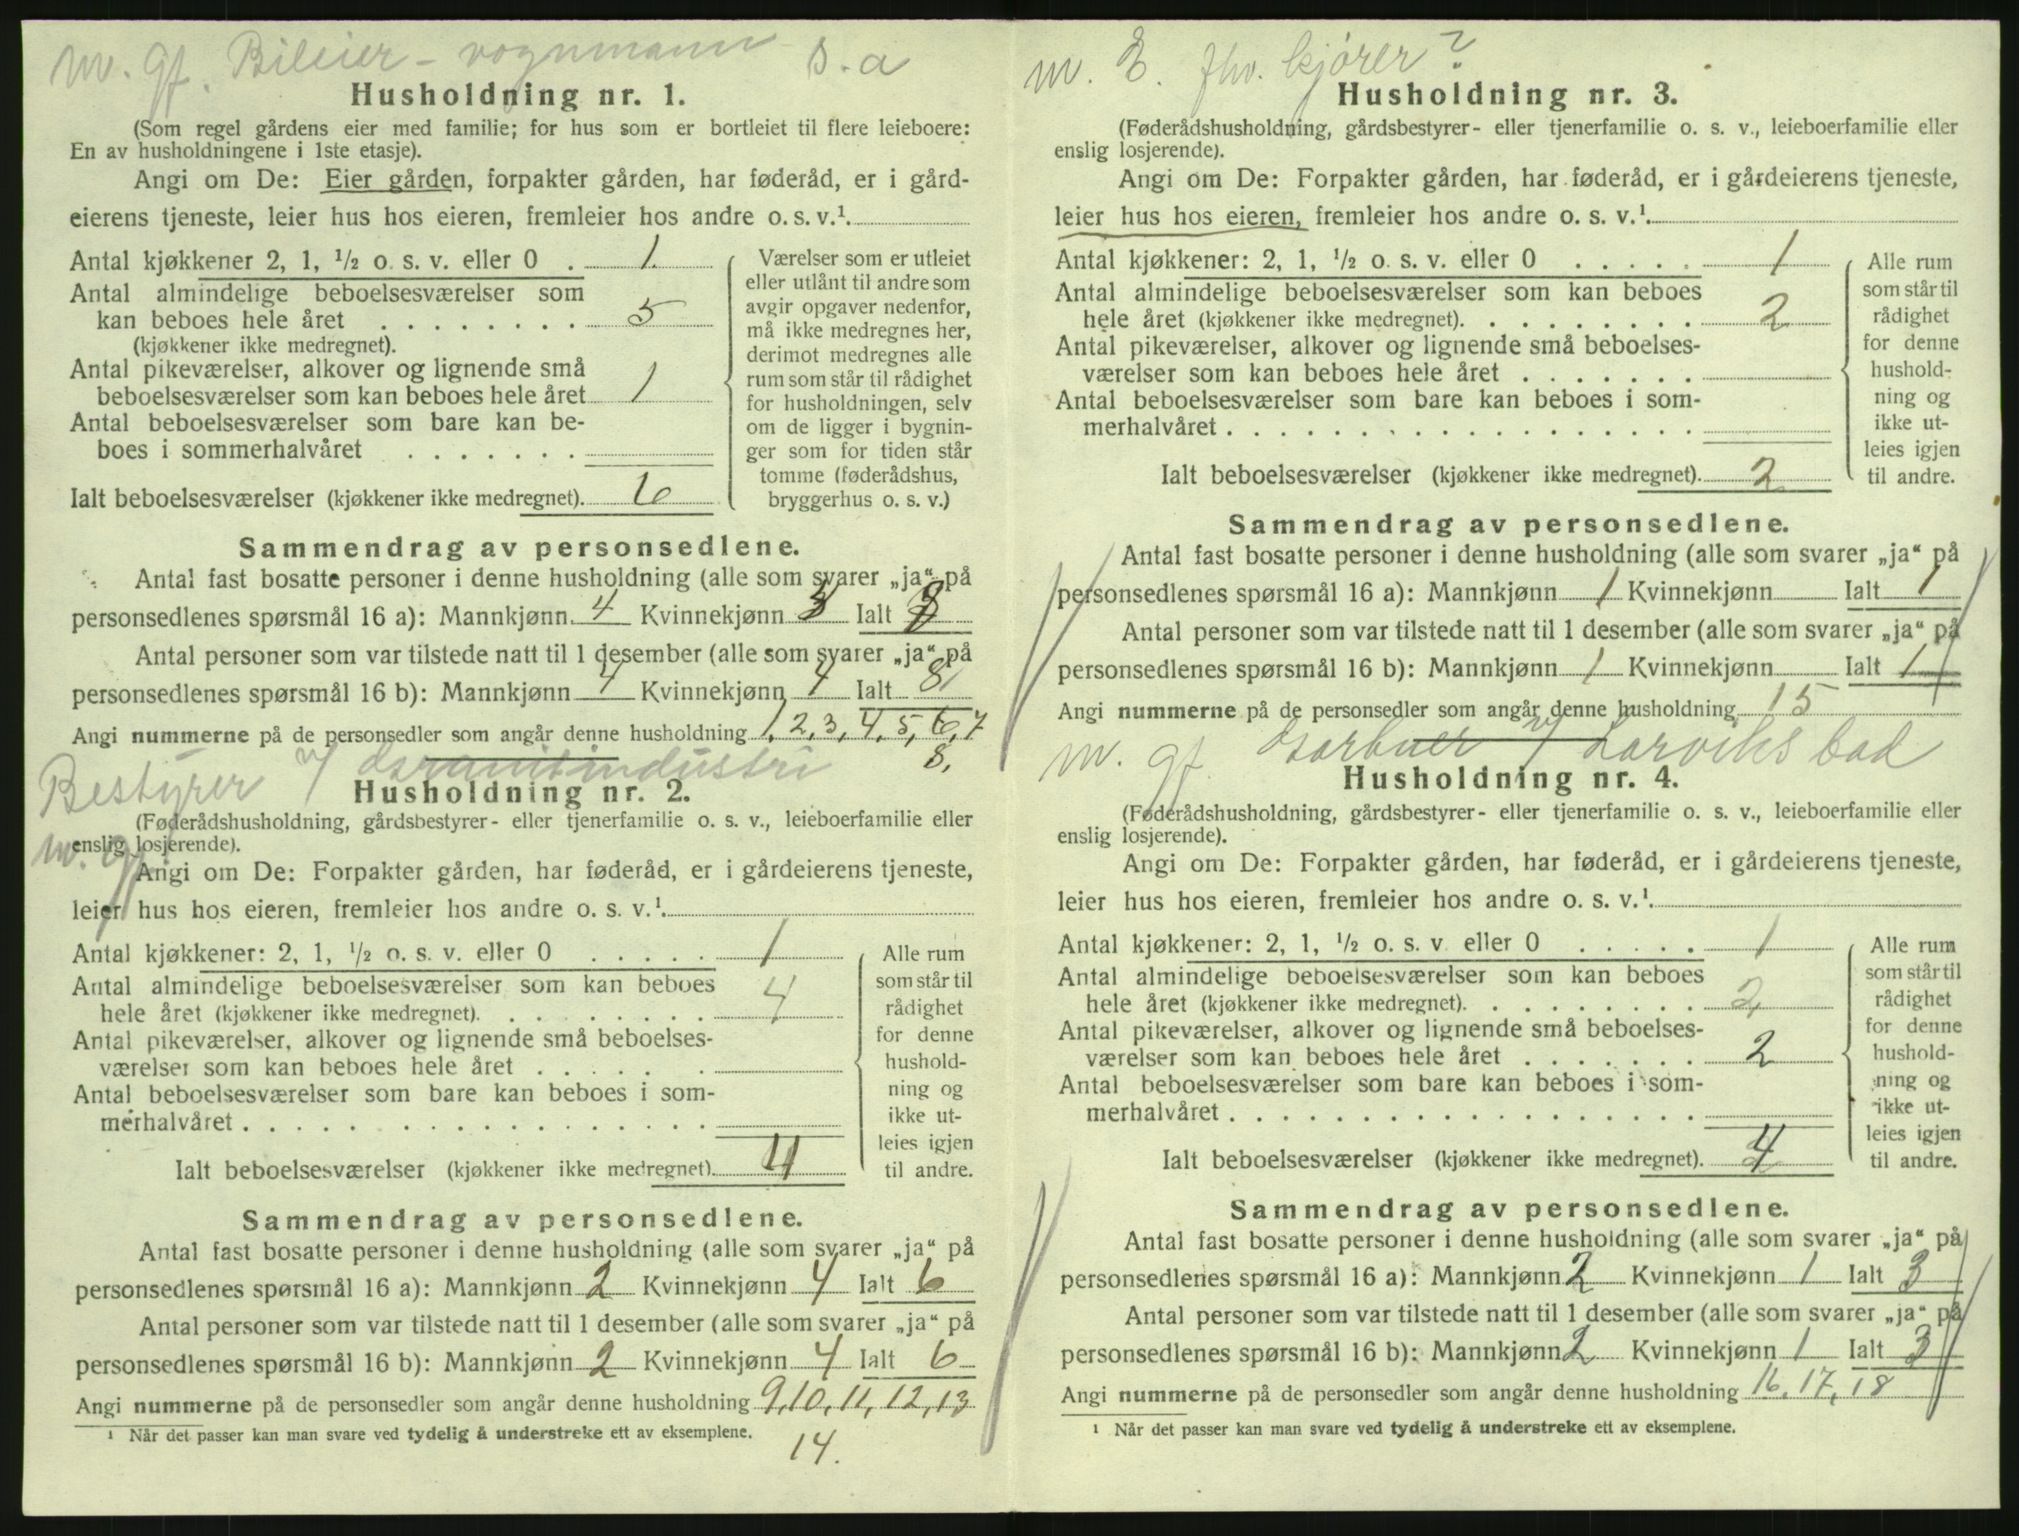 m. gf. Bileier - vognmann s.a
Husholdning nr. 1.
(Som regel gårdens eier med familie; for hus som er bortleiet til flere leieboere:
En av husholdningene i 1ste etasje).
Angi om De: Eier gården, forpakter gården, har føderåd, er i gård-
eierens tjeneste, leier hus hos eieren, fremleier hos andre o. s. v.¹
Antal kjøkkener 2, 1, ½ o. s. v. eller 0 . 1
Antal almindelige beboelsesværelser som
kan beboes hele året . . . . . . . . 5
(kjøkkener ikke medregnet).
Antal pikeværelser, alkover og lignende små
beboelsesværelser som kan beboes hele året 1
Antal beboelsesværelser som bare kan be-
boes i sommerhalvåret . . . . . . .
Ialt beboelsesværelser (kjøkkener ikke medregnet). 6
Værelser som er utleiet
eller utlånt til andre som
avgir opgaver nedenfor,
må ikke medregnes her,
derimot medregnes alle
rum som står til rådighet
for husholdningen, selv
om de ligger i bygnin-
ger som for tiden står
tomme (føderådshus,
bryggerhus o. s. v.)
Sammendrag av personsedlene.
Antal fast bosatte personer i denne husholdning (alle som svarer „ja“ på
personsedlenes spørsmål 16 a): Mannkjønn 4 Kvinnekjønn Ialt
Antal personer som var tilstede natt til 1 desember (alle som svarer „ja“ på
personsedlenes spørsmål 16 b): Mannkjønn 4 Kvinnekjønn 4 Ialt 8
Angi nummerne på de personsedler som angår denne husholdning 1, 2, 3, 4, 5, 6, 7
8.
Bestyrer v/ industri
Husholdning nr. 2.
(Føderådshusholdning, gårdsbestyrer- eller tjenerfamilie o. s. v., leieboerfamilie eller
enslig losjerende).
m. gf.
Angi om De: Forpakter gården, har føderåd, er i gårdeierens tjeneste,
leier hus hos eieren, fremleier hos andre o. s. v.¹
Antal kjøkkener: 2, 1, ½ o. s. v. eller 0 . . . . . 1
Antal almindelige beboelsesværelser som kan beboes
hele året (kjøkkener ikke medregnet). . . . . . . . . 4
Antal pikeværelser, alkover og lignende små beboelses-
værelser som kan beboes hele året . . . . . . .
Antal beboelsesværelser som bare kan beboes i som-
merhalvåret . . . . . . . . . . . . . . . . . .
Ialt beboelsesværelser (kjøkkener ikke medregnet). 4
Alle rum
som står til
rådighet
for denne
hushold-
ning og
ikke ut-
leies igjen
til andre.
Sammendrag av personsedlene.
Antal fast bosatte personer i denne husholdning (alle som svarer „ja“ på
personsedlenes spørsmål 16 a): Mannkjønn 2 Kvinnekjønn 4 Ialt 6
Antal personer som var tilstede natt til 1 desember (alle som svarer „ja“ på
personsedlenes spørsmål 16 b): Mannkjønn 2 Kvinnekjønn 4 Ialt 6
Angi nummerne på de personsedler som angår denne husholdning 9, 10, 11, 12, 13
14.
¹ Når det passer kan man svare ved tydelig å understreke ett av eksemplene.
m. E. fhv. kjører?
Husholdning nr. 3.
(Føderådshusholdning, gårdsbestyrer- eller tjenerfamilie o. s. v., leieboerfamilie eller
enslig losjerende).
Angi om De: Forpakter gården, har føderåd, er i gårdeierens tjeneste,
leier hus hos eieren, fremleier hos andre o. s. v.¹
Antal kjøkkener: 2, 1, ½ o. s. v. eller 0 . . . . . 1
Antal almindelige beboelsesværelser som kan beboes
hele året (kjøkkener ikke medregnet). . . . . . . . . 2
Antal pikeværelser, alkover og lignende små beboelses-
værelser som kan beboes hele året . . . . . . .
Antal beboelsesværelser som bare kan beboes i som-
merhalvåret . . . . . . . . . . . . . . . . . .
Ialt beboelsesværelser (kjøkkener ikke medregnet). 2
Alle rum
som står til
rådighet
for denne
hushold-
ning og
ikke ut-
leies igjen
til andre.
Sammendrag av personsedlene.
Antal fast bosatte personer i denne husholdning (alle som svarer „ja“ på
personsedlenes spørsmål 16 a): Mannkjønn 1 Kvinnekjønn Ialt 1
Antal personer som var tilstede natt til 1 desember (alle som svarer „ja“ på
personsedlenes spørsmål 16 b): Mannkjønn 1 Kvinnekjønn Ialt 1
Angi nummerne på de personsedler som angår denne husholdning 15
m. gf. v/ Larviks bad
Husholdning nr. 4.
(Føderådshusholdning, gårdsbestyrer- eller tjenerfamilie o. s. v., leieboerfamilie eller
enslig losjerende).
Angi om De: Forpakter gården, har føderåd, er i gårdeierens tjeneste,
leier hus hos eieren, fremleier hos andre o. s. v.¹
Antal kjøkkener: 2, 1, ½ o. s. v. eller 0 . . . . . 1
Antal almindelige beboelsesværelser som kan beboes
hele året (kjøkkener ikke medregnet). . . . . . . . . 2
Antal pikeværelser, alkover og lignende små beboelses-
værelser som kan beboes hele året . . . . . . . 2
Antal beboelsesværelser som bare kan beboes i som-
merhalvåret . . . . . . . . . . . . . . . . . .
Ialt beboelsesværelser (kjøkkener ikke medregnet). 4
Alle rum
som står til
rådighet
for denne
hushold-
ning og
ikke ut-
leies igjen
til andre.
Sammendrag av personsedlene.
Antal fast bosatte personer i denne husholdning (alle som svarer „ja“ på
personsedlenes spørsmål 16 a): Mannkjønn 2 Kvinnekjønn 1 Ialt 3
Antal personer som var tilstede natt til 1 desember (alle som svarer „ja“ på
personsedlenes spørsmål 16 b): Mannkjønn 2 Kvinnekjønn 1 Ialt 3
Angi nummerne på de personsedler som angår denne husholdning 16, 17, 18
¹ Når det passer kan man svare ved tydelig å understreke ett av eksemplene.